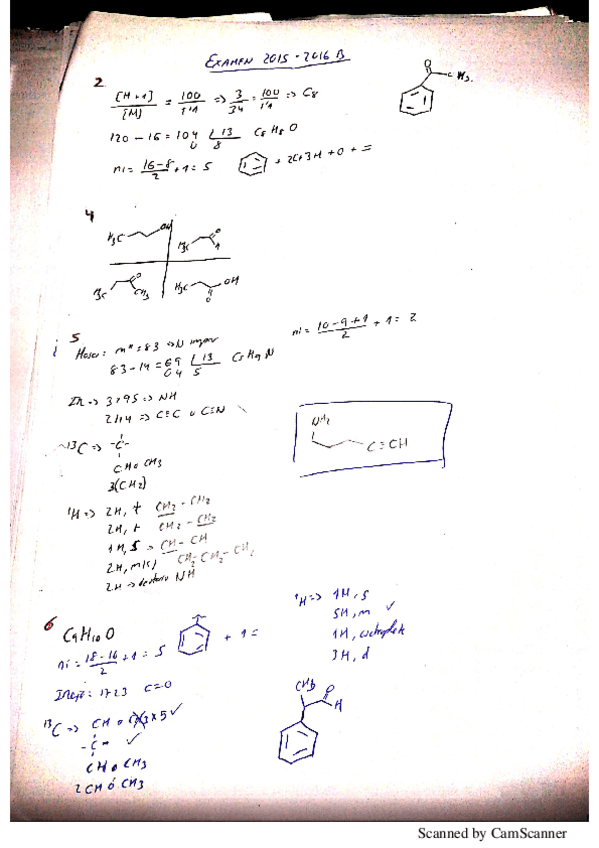 EXAMEN 2015-2016 B
2
[M+1]/[M] = 100/1'1 => 3/34 = 100/1'1 => C8
120 - 16 = 104 | 13 C8 H8 O
0 8
ni = 16-8/2 + 1 = 5 + 2C+3H + O + =
O
CH3.
4
H3C OH
H3C O
H3C O CH3
H3C O OH
5
m+ = 83 => N impar
83 - 14 = 69 | 13 C5 H9 N
04 5
ni = 10-9+1/2 + 1 = 2
IR => 3295 => NH
2114 => C≡C o C≡N
13C => -C-
CH o CH3
3(CH2)
NH2
C≡CH
1H => 2H, t CH2-CH2
2H, t CH2-CH2
1H, s => CH-CH
2H, m(s) CH2-CH2-CH2
2H => NH
6
C9H10O
ni = 18-16/2 + 1 = 5 + 1 =
1723 C=O
13C => CH o
-C=
CH o CH3
2CH ó CH3
1H => 1H, s
5H, m
1H, cuadruplete
3H, d
CH3 O
H
Scanned by CamScanner